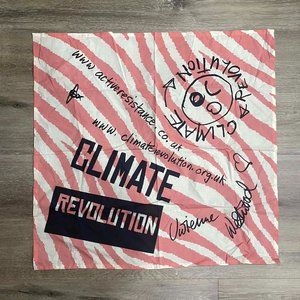 CLIMATE REVOLUTION
www.activeresistance.co.uk
www.climaterevolution.org.uk
CLIMATE
REVOLUTION
Vivienne Westwood